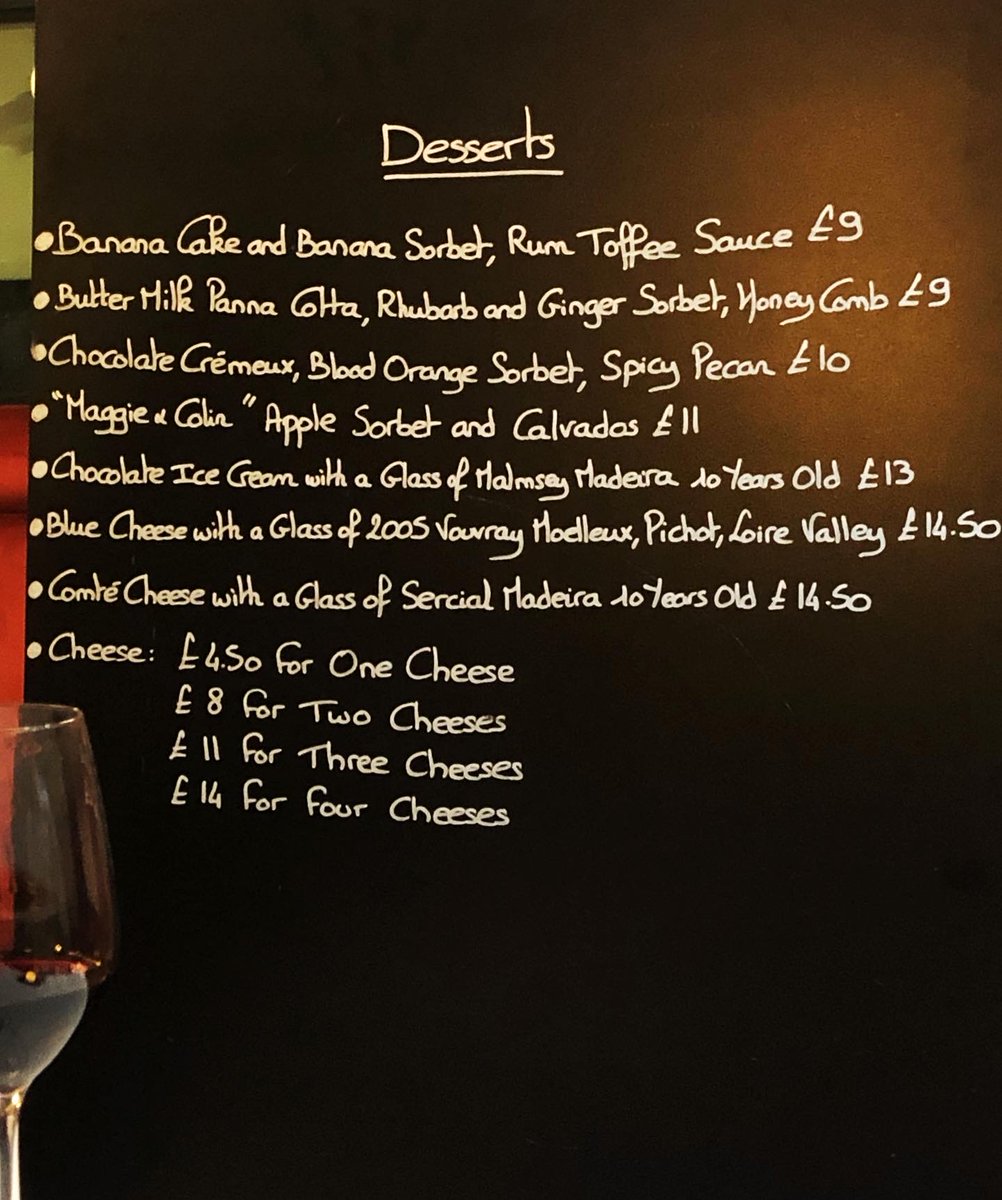 Desserts
•Banana Cake and Banana Sorbet, Rum Toffee Sauce £9
•Butter Milk Panna Cotta, Rhubarb and Ginger Sorbet, Honey Comb £9
•Chocolate Crémeux, Blood Orange Sorbet, Spicy Pecan £10
•"Maggie & Colin" Apple Sorbet and Calvados £11
•Chocolate Ice Cream with a Glass of Malmsey Madeira 10 Years Old £13
•Blue Cheese with a Glass of 2005 Vouvray Moelleux, Pichot, Loire Valley £14.50
•Comté Cheese with a Glass of Sercial Madeira 10 Years Old £14.50
•Cheese: £4.50 for One Cheese
£8 for Two Cheeses
£11 for Three Cheeses
£14 for Four Cheeses